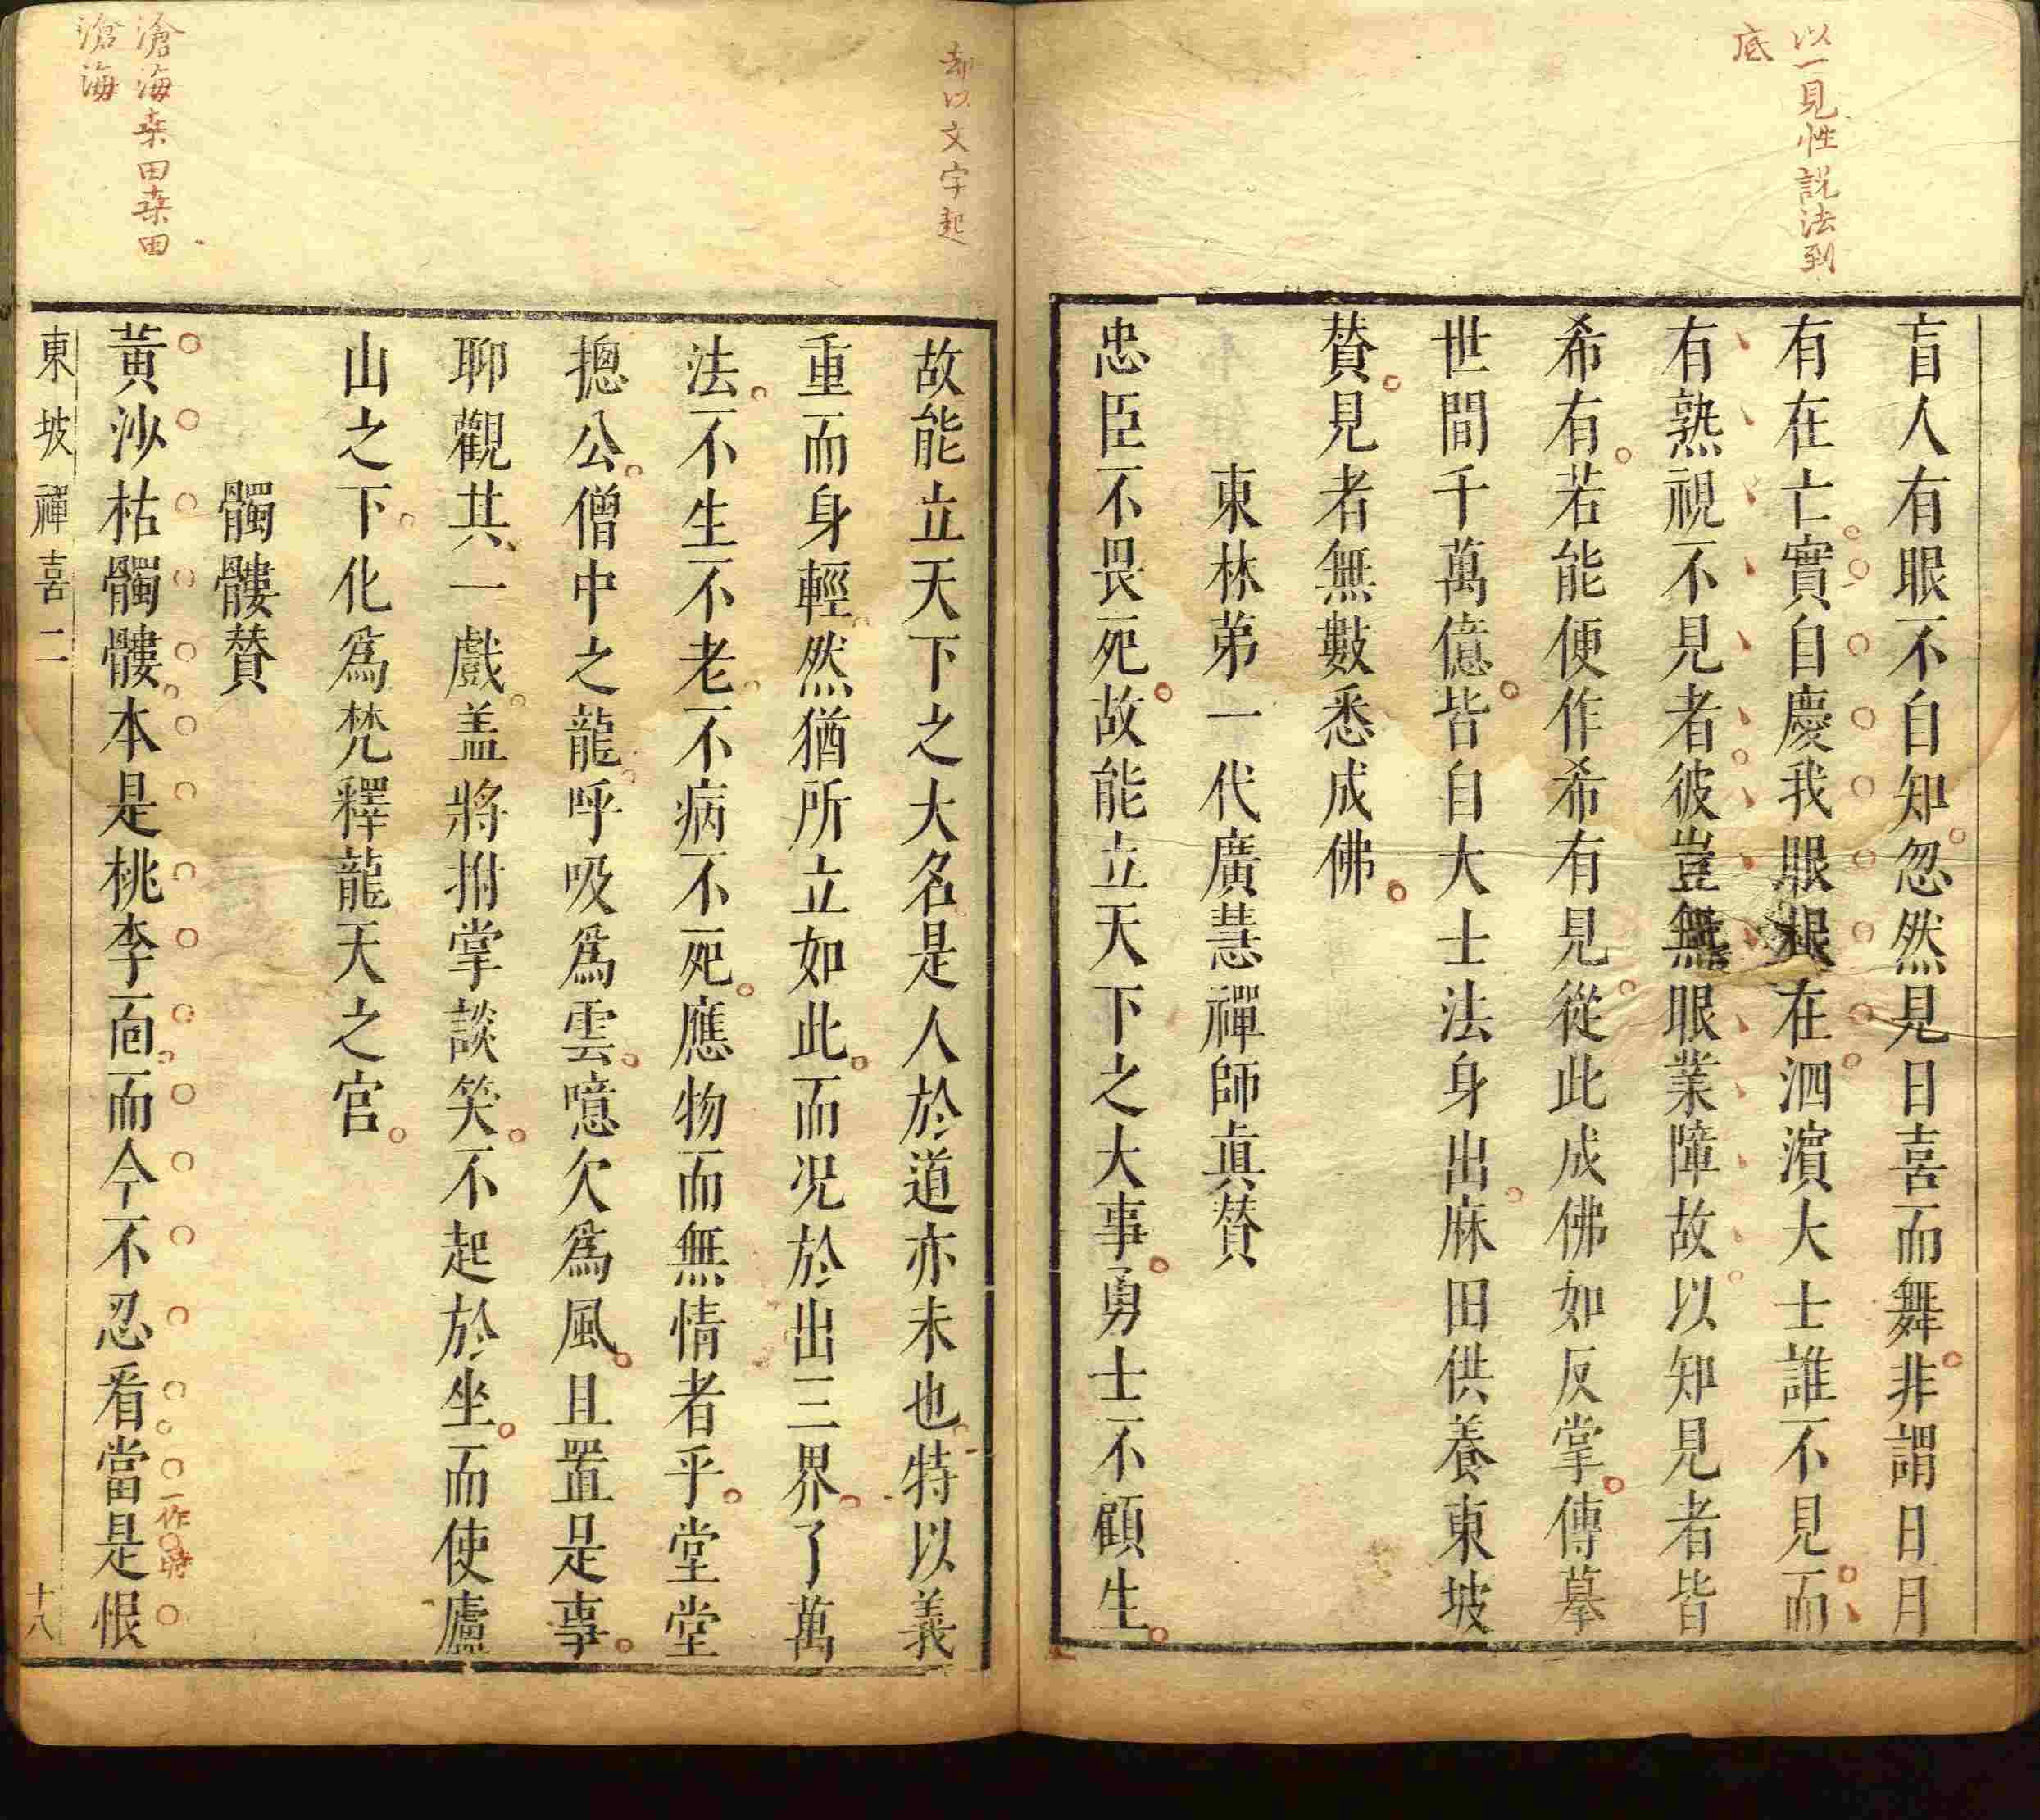 以一見性説法到
底
盲人有眼不自知忽然見日喜而舞非謂日月
有在亡實自慶我眼根在泗濱大士誰不見而
有熟視不見者彼豈無眼業障故以知見者皆
希有若能便作希有見從此成佛如反掌傳摹
世間千萬億皆自大士法身出麻田供養東坡
贊見者無數悉成佛
東林第一代廣慧禪師真贊
忠臣不畏死故能立天下之大事勇士不顧生
却以文字起
滄海桒田桒田
滄海
故能立天下之大名是人於道亦未也特以義
重而身輕然猶所立如此而况於出三界了萬
法不生不老不病不死應物而無情者乎堂堂
摠公僧中之龍呼吸爲雲噫欠爲風且置是事
聊觀其一戲盖將拊掌談笑不起於坐而使廬
山之下化爲梵釋龍天之宫
髑髏贊
黃沙枯髑髏本是桃李面而今不忍看當是恨
一作時
東坡禪喜二
十八